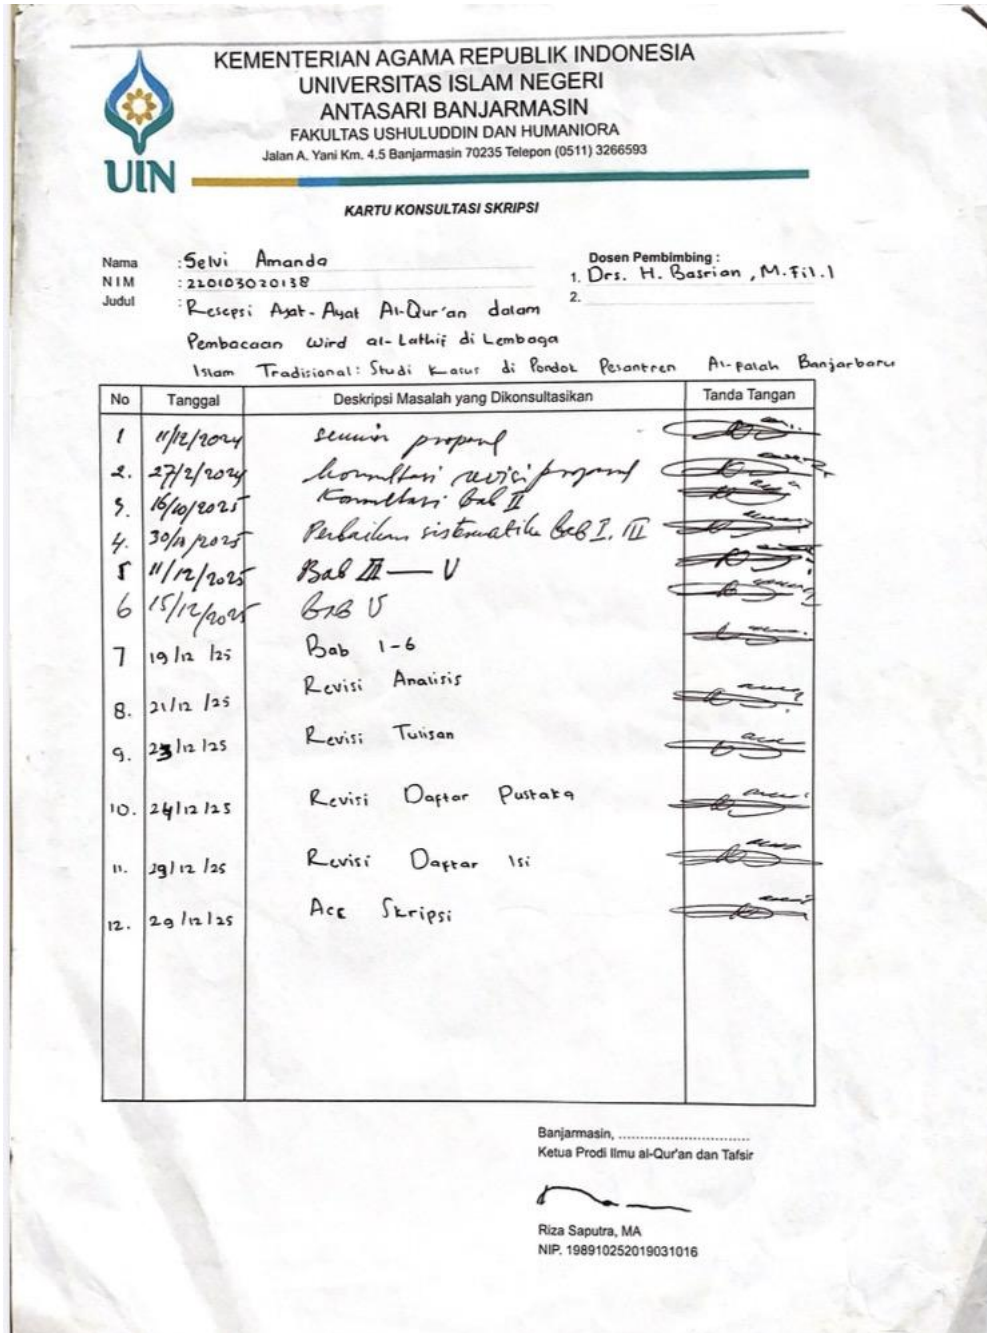 KEMENTERIAN AGAMA REPUBLIK INDONESIA
UNIVERSITAS ISLAM NEGERI
ANTASARI BANJARMASIN
FAKULTAS USHULUDDIN DAN HUMANIORA
Jalan A. Yani Km. 4.5 Banjarmasin 70235 Telepon (0511) 3266593
UIN
KARTU KONSULTASI SKRIPSI
Nama : Selvi Amanda
NIM : 220103020138
Judul : Resepsi Ayat-Ayat Al-Qur'an dalam
Pembacaan Wird al-Lathif di Lembaga
Islam Tradisional: Studi Kasus di Pondok Pesantren Al-Falah Banjarbaru
Dosen Pembimbing :
1. Drs. H. Basrian, M.Fil.I
2.
No Tanggal Deskripsi Masalah yang Dikonsultasikan Tanda Tangan
1 11/12/2024 seminar proposal
2. 27/2/2024 konsultasi revisi proposal
3. 16/10/2025 Konsultasi bab II
4. 30/10/2025 Perbaikan sistematika bab I, III
5 11/12/2025 Bab III — V
6 15/12/2025 bab V
7 19/12/25 Bab 1-6
8. 21/12/25 Revisi Analisis
9. 23/12/25 Revisi Tulisan
10. 24/12/25 Revisi Daftar Pustaka
11. 29/12/25 Revisi Daftar Isi
12. 29/12/25 Acc Skripsi
Banjarmasin, ..............................
Ketua Prodi Ilmu al-Qur'an dan Tafsir
Riza Saputra, MA
NIP. 198910252019031016